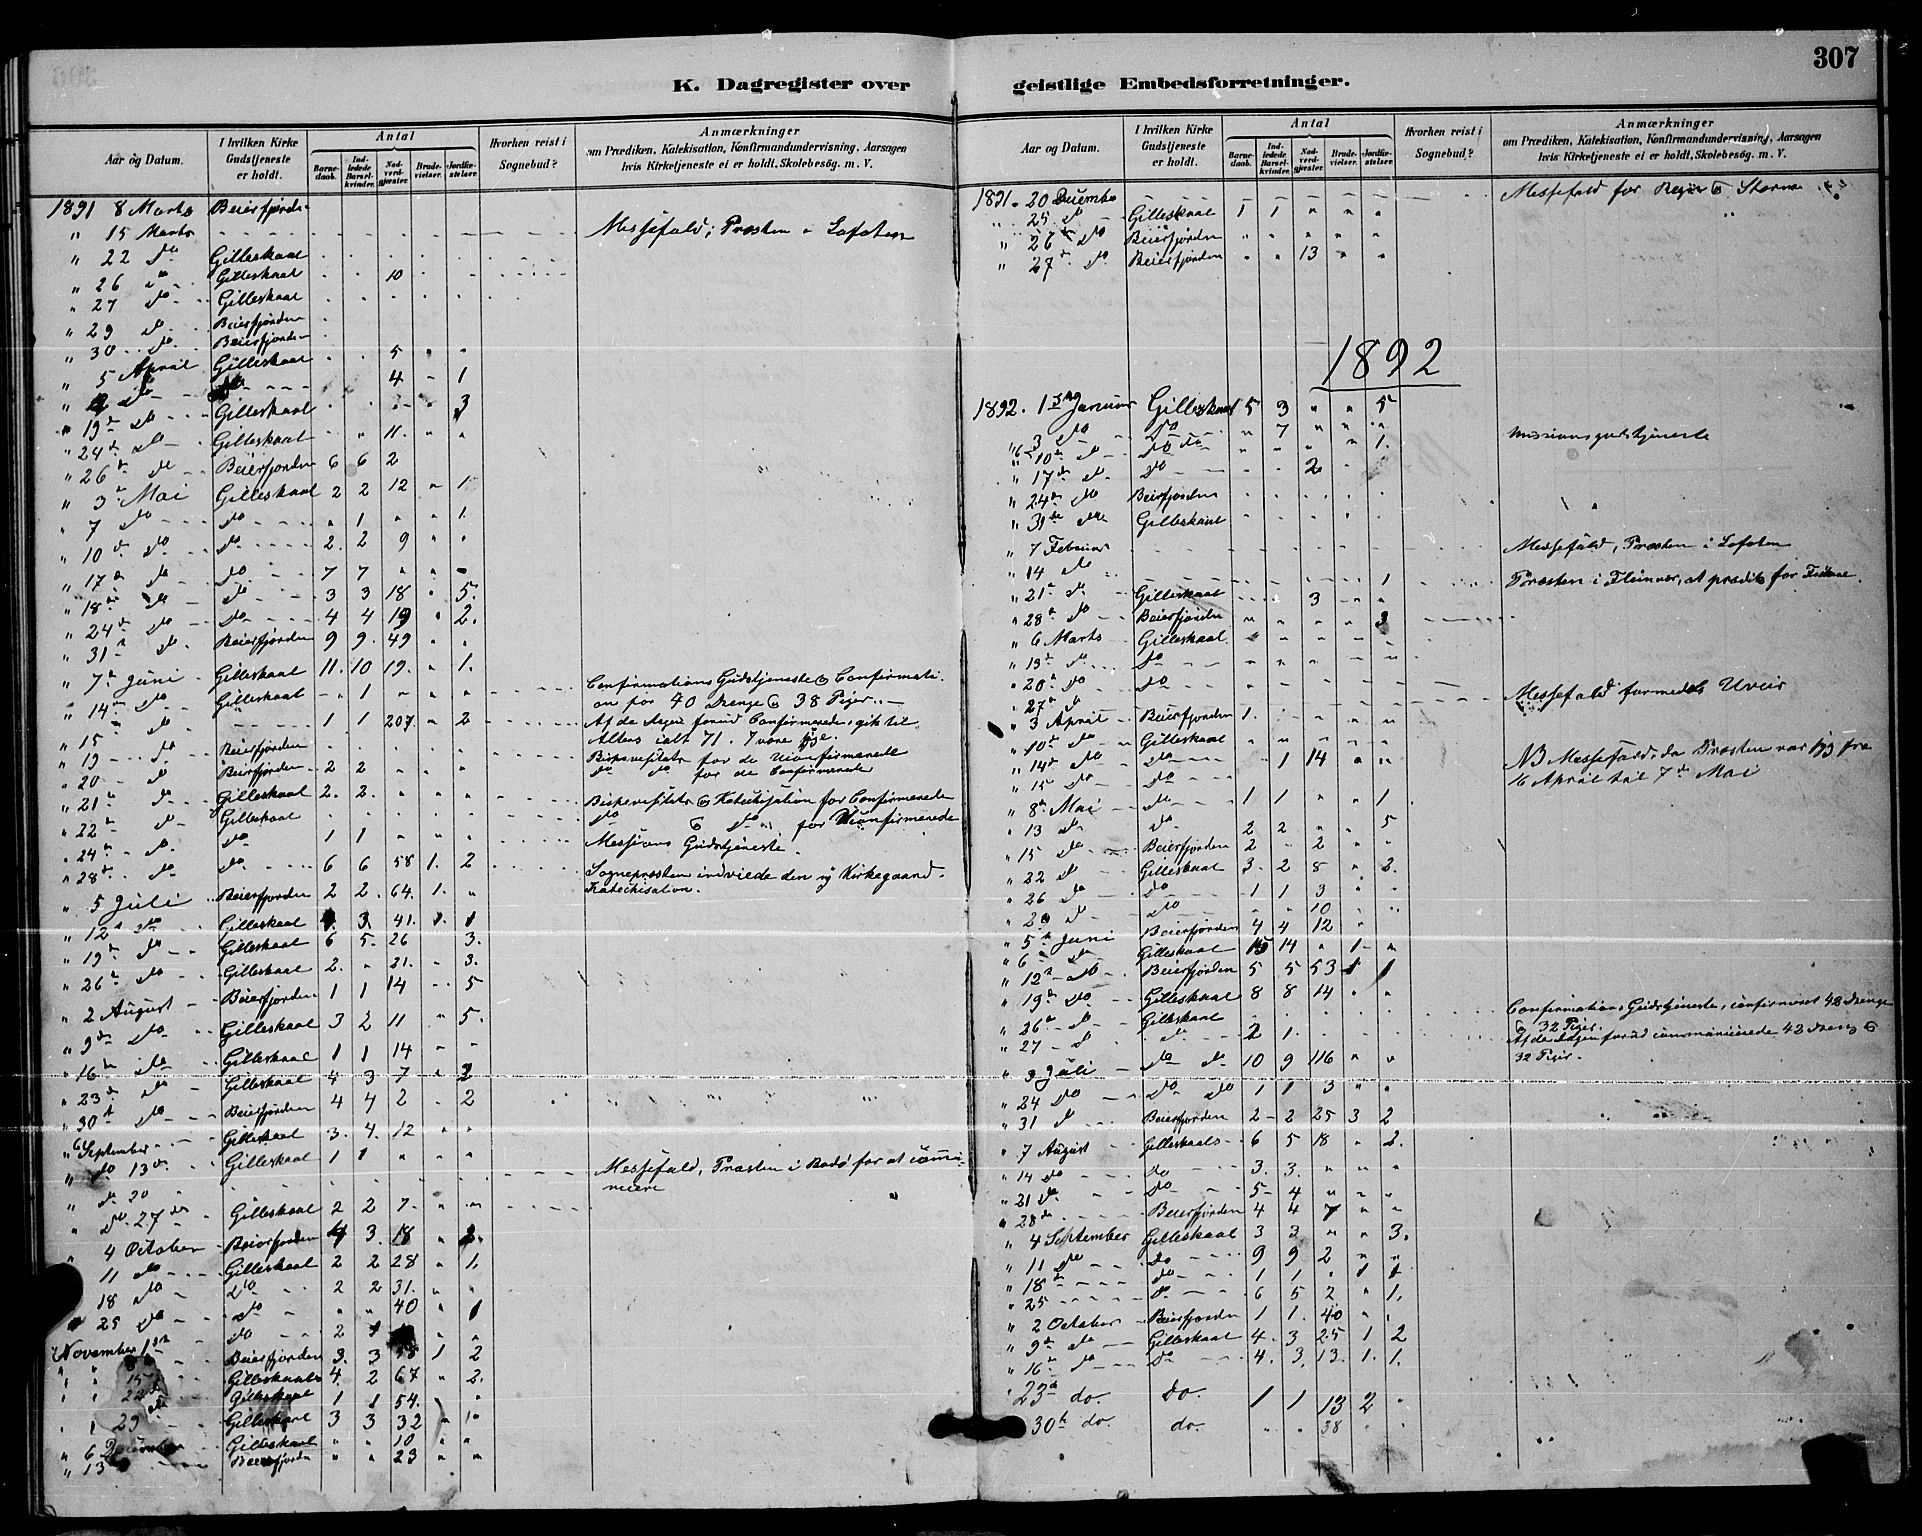 307
K. Dagregister over
geistlige Embedsforretninger.
Aar og Datum.
I hvilken Kirke Gudstjeneste er holdt.
Antal
Barnedaab.
Indledede Barselkvinder.
Nadverdgjæster.
Brudevielser.
Jordfæstelser.
Hvorhen reist i Sognebud?
Anmærkninger
om Prædiken, Katekisation, Konfirmandundervisning, Aarsagen
hvis Kirketjeneste ei er holdt, Skolebesög. m. V.
1891 8 Marts Beierfjorden
" 15 Marts Messefald, Præsten i Lofoten
" 22 do Gilleskaal
" 26 " Gilleskaal 10
" 27 do Gilleskaal
" 29 do Beierfjorden
" 30 do Beierfjorden
" 5 April Gilleskaal 5 " "
do do 4 - 1
" 19de do Gilleskaal 3
" 24de do Gilleskaal 11 " "
" 26de do Beierfjorden 6 6 2
" 3de Mai Gilleskaal 2 2 12 " 1
" 7 do do " 1 " " 1.
" 10de do do 2. 2 9 " "
" 17de do do 7 7 " " -
" 18de do do 3 3 18 " 5.
" 24de do do 4 4 19 " 2.
" 31te do Beierfjorden 9 9 49 " "
" 7de Juni Gilleskaal 11. 10 19. " 1.
" 14de do Gilleskaal - 1 " " " Confirmations Gudstjeneste & Confirmati-
on for 40 Drenge & 38 Piger. -
" 15 do 1 1 207. " 2 Af de Dagen forud Confirmerede, gik til
Alters ialt 71. 7 vare syge.
" 19 do Beierfjorden Bispevisitats for de Uconfirmerede
" 20 do Beierfjorden 2 2 " " " do do for de Confirmerede
" 21de do Gilleskaal 2. 2. " " " Bispevisitats & Katekisation for Confirmerede
" 22de do Gilleskaal do & do for Uconfirmerede
" 24de do do 1 1 " " " Messions Gudstjeneste.
" 28de do do 6 6 58 1. 2 Sognepræsten indviede den ny Kirkegaard.
" 5 Juli Beierfjorden 2 2. 64. 1. " Katechisation.
" 12te do Gilleskaal 3. 41. 1. 1
" 19de do Gilleskaal 6 5. 26 3.
" 26de do Gilleskaal 2. " 21. " 3.
" 2 August Beierfjorden 1 1 14 - 5
" 9de do Gilleskaal 3 2 11 " 5.
" 16de do Gilleskaal 1 1 14 - -
" 23de do Gilleskaal 4 3 7 " 2
" 30te do Beierfjorden 4 4 2 - 2
6 September Gilleskaal 3. 4. 12 " "
" do 13de Gilleskaal 1 1 " " "
" do 20 Messefald, Præsten i Bodø for at
" do 27de Gilleskaal 2 2 7. " "
" 4 October Beierfjorden 4 3. 18 " 2.
" 11 do Gilleskaal 2 2 28 " 1.
" 18 do do 2 2 31. " "
" 25 do do " " 40 " 1
November 1ste do 2 1 " "
Beierfjorden 3. 3 58 1 2
" " 15 Gilleskaal 4. 2 67 " 2.
" " 22 Gilleskaal 1 1 54. "
" " 29 Gilleskaal 3 3 32 " 1
" 6 December Gilleskaal " " 10 " "
" 13 Beierfjorden " " 23 " "
Aar og Datum.
I hvilken Kirke Gudstjeneste er holdt.
Antal
Barnedaab.
Indledede Barselkvinder.
Nadverdgjæster.
Brudevielser.
Jordfæstelser.
Hvorhen reist i Sognebud?
Anmærkninger
om Prædiken, Katekisation, Konfirmandundervisning, Aarsagen
hvis Kirketjeneste ei er holdt, Skolebesög. m. V.
1891. 20 December Messefald for Regn & Storm
" 25 do Gilleskaal 1 1 " " "
" 26de do Beierfjorden " " " " "
" 27de do Beierfjorden " " 13 " "
1892
1892. 1ste Januar Gilleskaal 5 3 " " 5
3 do do " 7 " " " Missionsgudstjeneste
" 10de do do do " " " " 1.
" 17de do do 2
" 24de do Beierfjorden
" 31te do Gilleskaal
" 7 Februar Messefald, Præsten i Lofoten
" 14 do 1 Præsten i Fleinvær, at prædike for
" 21 do Gilleskaal 3 " "
" 28de do Beierfjorden " " " " 3
" 6 Marts Gilleskaal
" 13de do do
" 20de do do
" 27de do Messefald formedels Uveir
" 3 April Beierfjorden 1.
" 10de do Gilleskaal
" 14de do do 1 14 " "
" 15 do do NB Messefald, da Præsten var syg fra
16 April til 7de Mai
" 8de Mai do 1 1 " " 1
" 13 do do 2 2 " " 5
" 15 do Beierfjorden 2 - 2 " "
" 22 do Gilleskaal 3 - 2 8 " 2.
" 26 do do - 1 1 3 " "
" 29 do do " " 10 " "
" 5te Juni Beierfjorden 4 4 12 "
" 6te do Gilleskaal 15 14 " 1- "
" 12te do Beierfjorden 5 5 53 1 1
" 19de do Gilleskaal 8 8 14 " "
" 26de do Gilleskaal Confirmations Gudstjeneste, confirmeret 42 Drenge
& 32 Piger.
" 27 do do 2 1. Af de Dagen forud communicerede 42 Dreng &
32 Piger.
" 3 Juli do do 10 9 116 " "
" 24 do do do 1 1 3 " "
" 31 do Beierfjorden 2 - 2 25 3 2
" 7 August Gilleskaal 6 5 18 " 2.
" 14 do do 3. 3. " " "
" 21 do do 5- 4 " " "
" 28de Beierfjorden 4 4 7 " "
" 4 September Gilleskaal 3 3 " " 3.
" 11 do do 9 9 2 " "
" 18 do 1 1 " 1 1
" 25 do 6 5 2 " 1.
" 2 October Beierfjorden 1 1. 40 " "
" 9de do Gilleskaal 4. 3 25 1 2
" 16de do do 4. 3. 13. 1. 1.
" 23de do. do. 1 1 13 2 "
30te do. do. " " 38 "